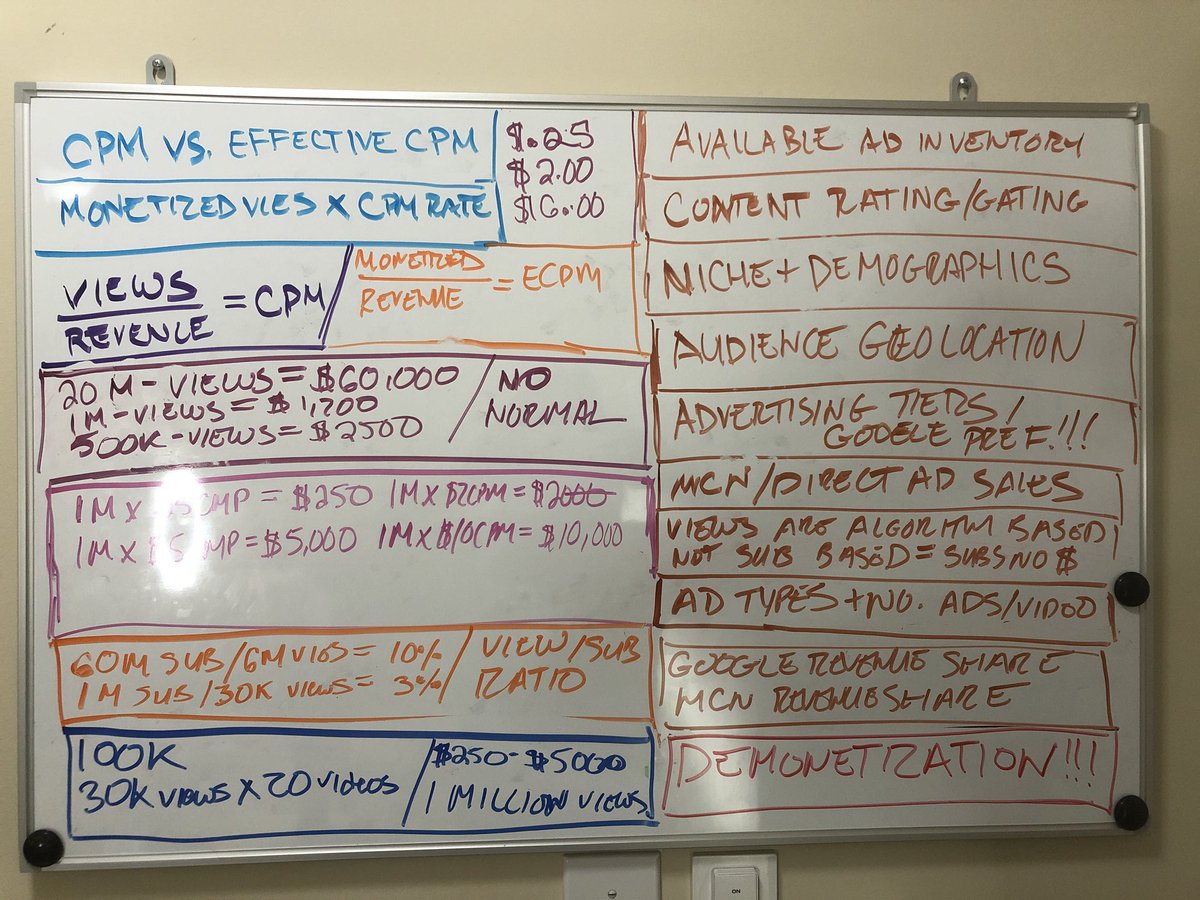 CPM VS. EFFECTIVE CPM
MONETIZED VIES X CPM RATE
$.25
$2.00
$10.00
VIEWS
REVENUE
= CPM
MONETIZED
REVENUE
= ECPM
20 M - VIEWS = $60,000
1M - VIEWS = $1,200
500K - VIEWS = $2500
NO
NORMAL
1M X = $250 1M X $2CPM = $2000
1M X = $5,000 1M X $10CPM = $10,000
60M SUB / 6M VIES = 10%
1M SUB / 30K VIEWS = 3%
VIEW/SUB
RATIO
100K
30K VIEWS X 20 VIDEOS
$250 - $5000
1 MILLION VIEWS
AVAILABLE AD INVENTORY
CONTENT RATING/GATING
NICHE + DEMOGRAPHICS
AUDIENCE GEOLOCATION
ADVERTISING TIERS /
GOOGLE PREF.!!!
MCN/DIRECT AD SALES
VIEWS ARE ALGORITHM BASED
NOT SUB BASED = SUBS NO $
AD TYPES + NO. ADS/VIDEO
GOOGLE REVENUE SHARE
MCN REVENUE SHARE
DEMONETIZATION!!!
ON